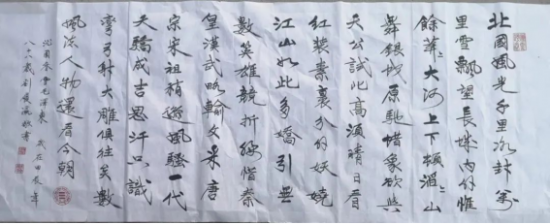 北國風光千里冰封萬
里雪飄望長城内外惟
餘莽〻大河上下頓滔〻山
舞銀蛇原馳蜡象欲與
天公試比高須晴日看
紅裝素裹分外妖嬈
江山如此多嬌引無
數英雄競折腰惜秦
皇漢武略輸文采唐
宗宋祖稍遜風騷一代
天驕成吉思汗只識
彎弓射大雕俱往矣數
風流人物還看今朝
沁園春雪毛澤東 歲在甲辰年
八八歲劉俊書